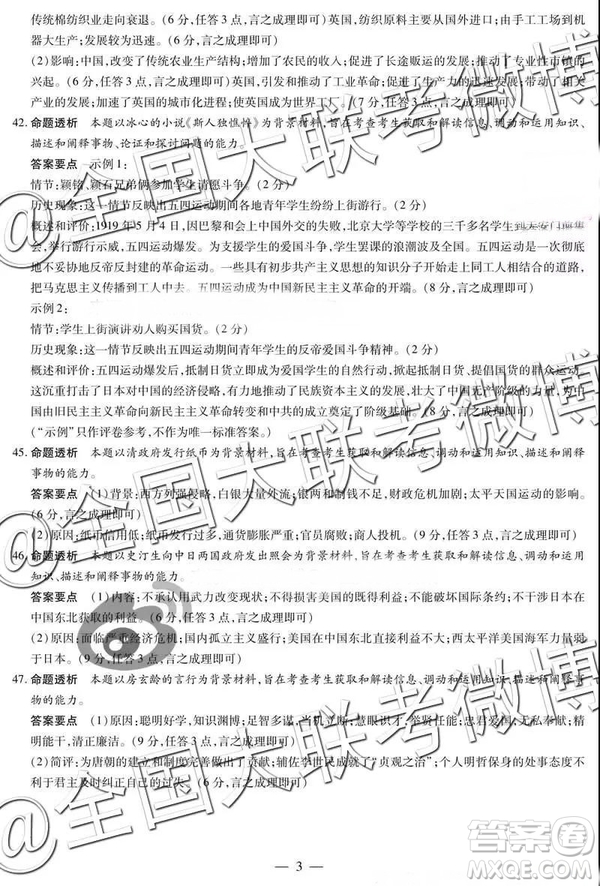 传统棉纺织业走向衰退。(6分,任答3点,言之成理即可)英国,纺织原料主要从国外进口;由手工工场到机
器大生产;发展较为迅速。(6分,任答3点,言之成理即可)
(2)影响:中国,改变了传统农业生产结构;增加了农民的收入;促进了长途贩运的发展;推动了专业性市镇的
兴起。(6分,任答3点,言之成理即可)英国,引发和推动了工业革命;促进了生产力的迅速发展;带动了相关
产业的发展;加速了英国的城市化进程;使英国成为世界工厂。(
42.命题透析 本题以冰心的小说《斯人独憔悴》为背景材料,旨在考查考生获取和解读信息、调动和运用知识、
描述和阐释事物、论证和探讨问题的能力。
答案要点 示例1:
情节:颖铭、颖石兄弟俩参加学生请愿斗争。(2分)
历史现象:这一情节反映出五四运动期间各地青年学生纷纷上街游行。(2分)
概述和评价:1919年5月4日,因巴黎和会上中国外交的失败,北京大学等学校的三千多名学生到天安门前集
会,举行游行示威,五四运动爆发。为支援学生的爱国斗争,学生罢课的浪潮波及全国。五四运动是一次彻
底地反帝反封建的革命运动。一些具有初步共产主义思想的知识分子开始走上同工人相结合的道路,
把马克思主义传播到工人中去。五四运动成为中国新民主主义革命的开端。(8分,言之成理即可)
示例2:
情节:学生上街演讲劝人购买国货。(2分)
历史现象:这一情节反映出五四运动期间青年学生的反帝爱国斗争精神。(2分)
概述和评价:五四运动爆发后,抵制日货立即成为爱国学生的自然行动,掀起提倡国货、抵制日货的群众运动。
这沉重打击了日本对中国的经济侵略,有力地推动了民族资本主义的发展,壮大了无产阶级的力量,为中
国由旧民主主义革命向新民主主义革命转变和中共的成立奠定了阶级基础。(8分,言之成理即可)
(“示例”只作评卷参考,不作为唯一标准答案。)
45.命题透析 本题以清政府发行纸币为背景材料,旨在考查考生获取和解读信息、调动和运用知识、描述和阐释
事物的能力。
答案要点 (1)背景:西方列强侵略,白银大量外流;银两和制钱不足;财政危机加剧;太平天国运动的影响。
(6分,任答3点,言之成理即可)
(2)原因:纸币信用低;纸币发行过多,通货膨胀严重;官员腐败;商人投机。(9分,任答3点,言之成理即可)
46.命题透析 本题以史汀生向中日两国政府发出照会为背景材料,旨在考查考生获取和解读信息、调动和运用
知识、描述和阐释事物的能力。
答案要点 (1)内容:不承认用武力改变现状;不得损害美国的既得利益;不能破坏国际条约;不干涉日本在
中国东北获取的利益。(6分,任答3点,言之成理即可)
(2)原因:面临严重经济危机;国内孤立主义盛行;美国在中国东北利益有限;西太平洋美国海军力量弱
于日本。(9分,任答3点,言之成理即可)
47.命题透析 本题以房玄龄的言行为背景材料,旨在考查考生获取和解读信息、调动和运用知识、描述和阐释事
物的能力。
答案要点 (1)原因:聪明好学,知识渊博;足智多谋,当机立断;慧眼识才,举贤任能;忠君爱国,无私奉献;
精明干练,清正廉洁。(9分,任答3点,言之成理即可)
(2)简评:为唐朝的建立和制度完善作出了贡献;辅佐李世民成就了“贞观之治”;个人明哲保身的处事态度不
利于君主及时纠正自己的过失。(6分,言之成理即可)
— 3 —
@全国大联考微博
@全国大联考微博
@全国大联考微博
答案圈
MXQE.COM